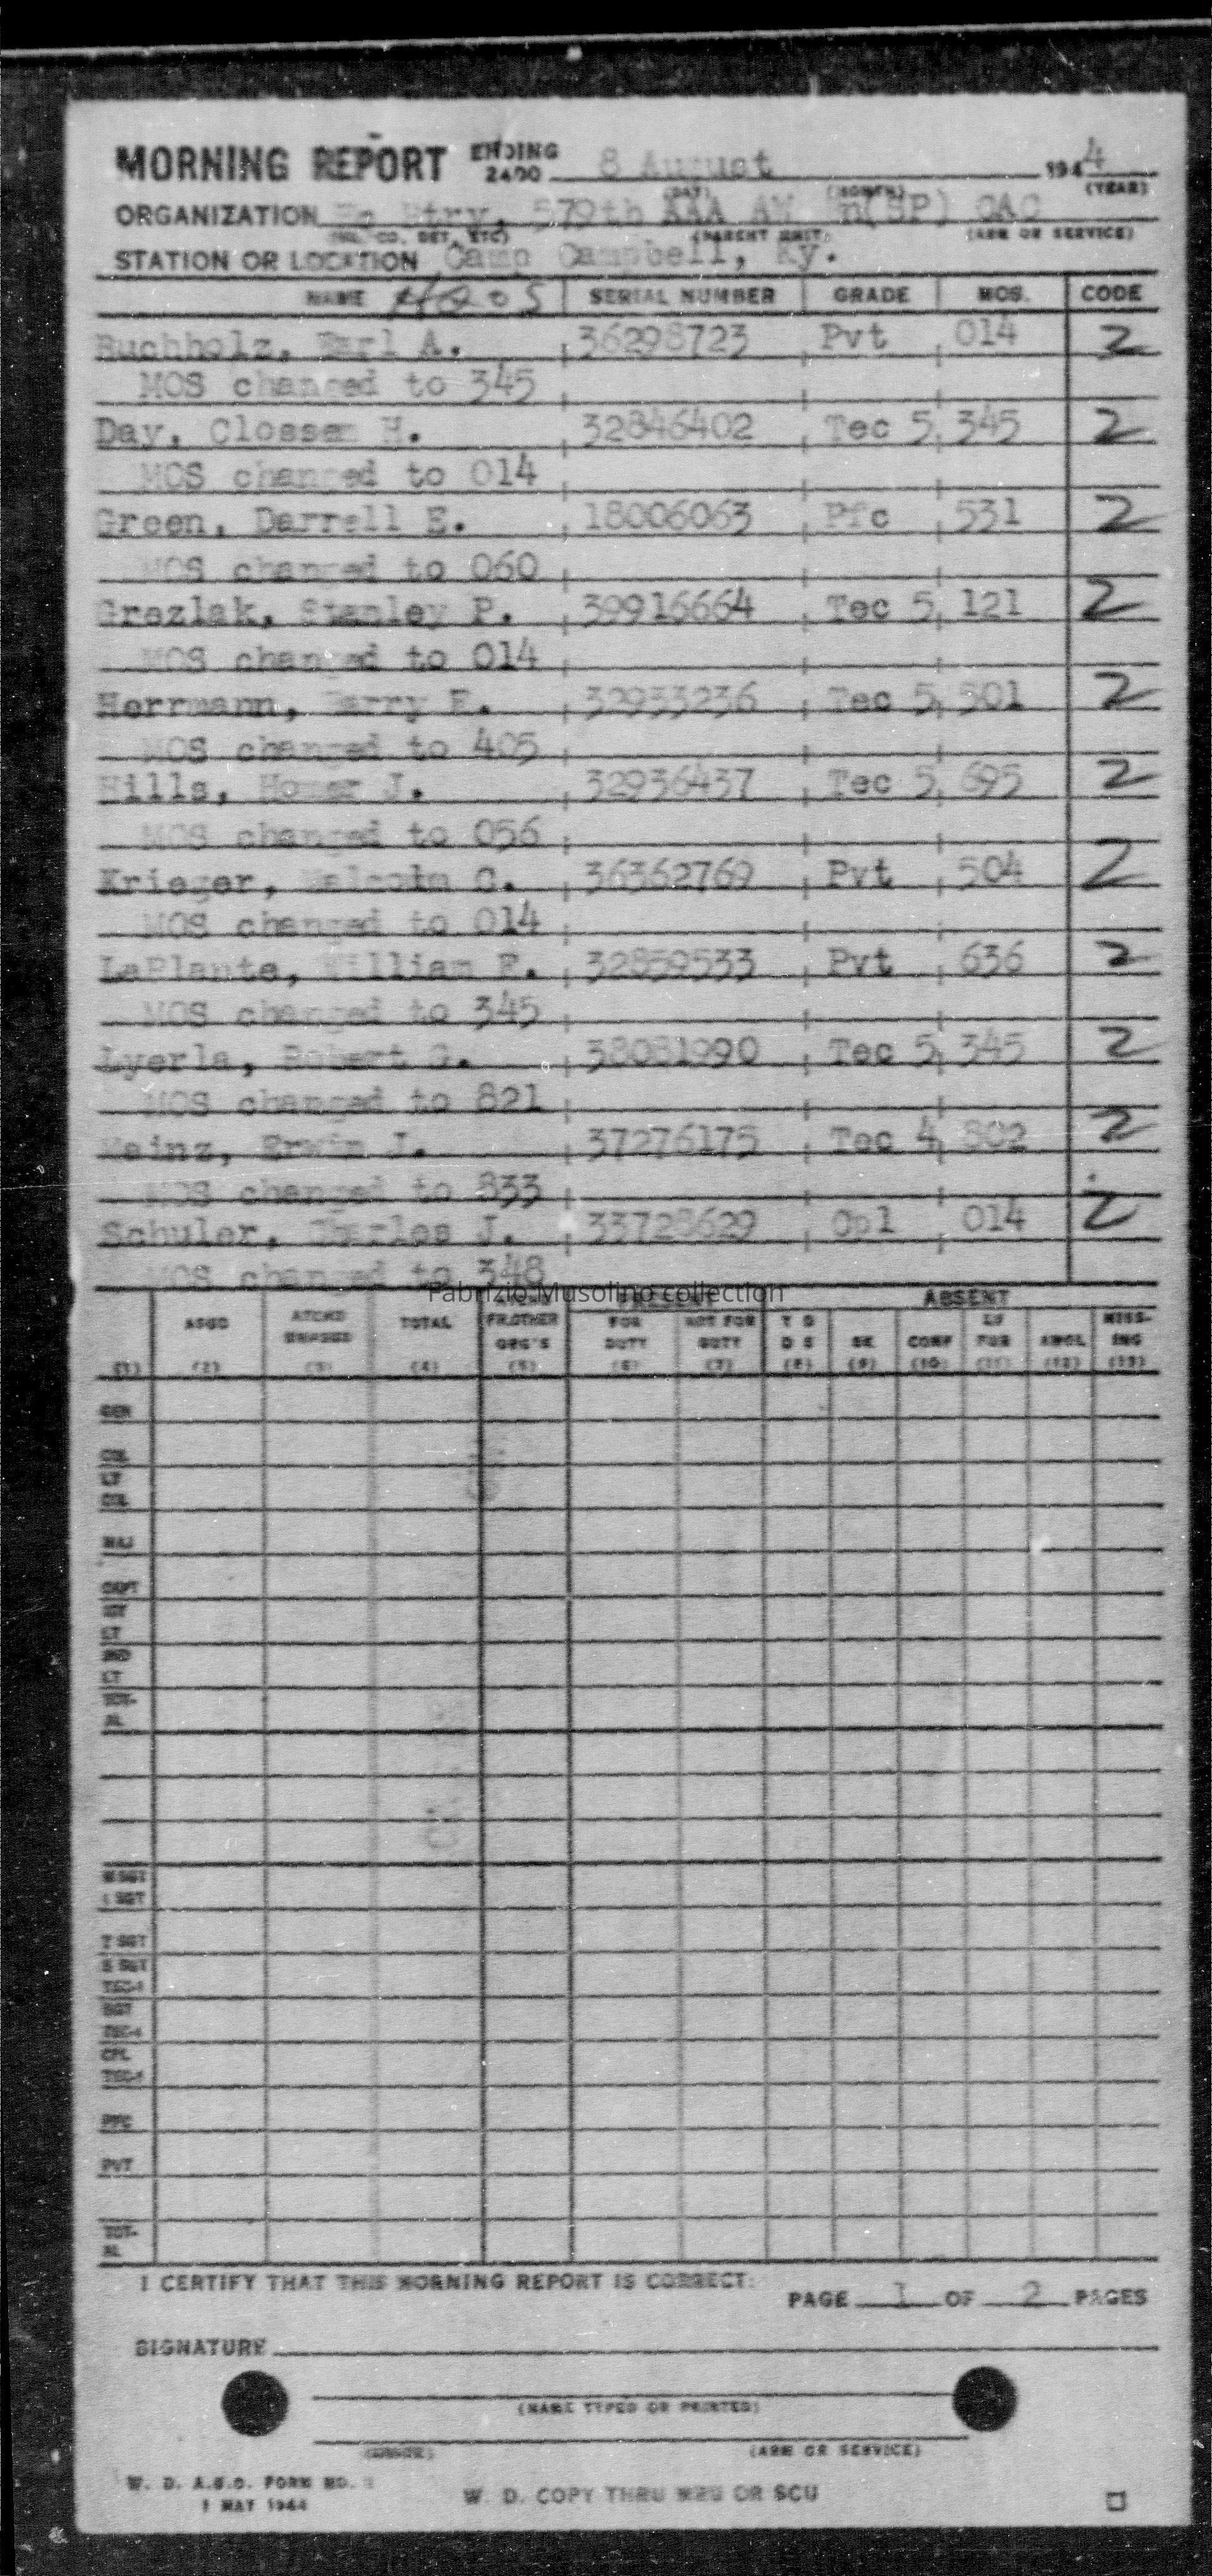 MORNING REPORT ENDING 2400 8 August 1944
(DAY) (MONTH) (YEAR)
ORGANIZATION Hq Btry, 579th AAA AW Bn(SP) CAC
(HQ, CO, DET, ETC) (PARENT UNIT) (ARM OR SERVICE)
STATION OR LOCATION Camp Campbell, Ky.
NAME SERIAL NUMBER GRADE MOS. CODE
Buchholz, Earl A. 36298723 Pvt 014 2
MOS changed to 345
Day, H. 32846402 Tec 5 345 2
MOS changed to 014
Green, Darrell E. 18006063 Pfc 531 2
MOS changed to 060
Grezlak, Stanley P. 39916664 Tec 5 121 2
MOS changed to 014
Herrmann, Harry E. 32933236 Tec 5 501 2
MOS changed to 405
Hills, Homer J. 32936437 Tec 5 695 2
MOS changed to 056
Krieger, Malcolm C. 36362769 Pvt 504 2
MOS changed to 014
LaPlante, William F. 32859533 Pvt 636 2
MOS changed to 345
Lyerla, Robert G. 38081990 Tec 5 345 2
MOS changed to 821
Meinz, Erwin J. 37276175 Tec 4 802 2
MOS changed to 833
Schuler, Charles J. 33728629 Cpl 014 2
MOS changed to 348
Fabrizio Musolino collection
PRESENT ABSENT
ASGD TOTAL FR.OTHER FOR NOT FOR T D MISS-
ORG'S DUTY DUTY D S SK CONF FUR AWOL ING
(1) (2) (3) (4) (5) (6) (7) (8) (9) (10) (11) (12) (13)
GEN
COL
LT
COL
MAJ
CAPT
1ST
LT
2ND
LT
TOT-
AL
M SGT
1 SGT
T SGT
S SGT
TEC-3
SGT
TEC-4
CPL
TEC-5
PFC
PVT
TOT-
AL
I CERTIFY THAT THIS MORNING REPORT IS CORRECT:
PAGE 1 OF 2 PAGES
SIGNATURE
(NAME TYPED OR PRINTED)
(GRADE) (ARM OR SERVICE)
W. D. A.G.O. FORM NO. 1
1 MAY 1944
W. D. COPY THRU MRU OR SCU